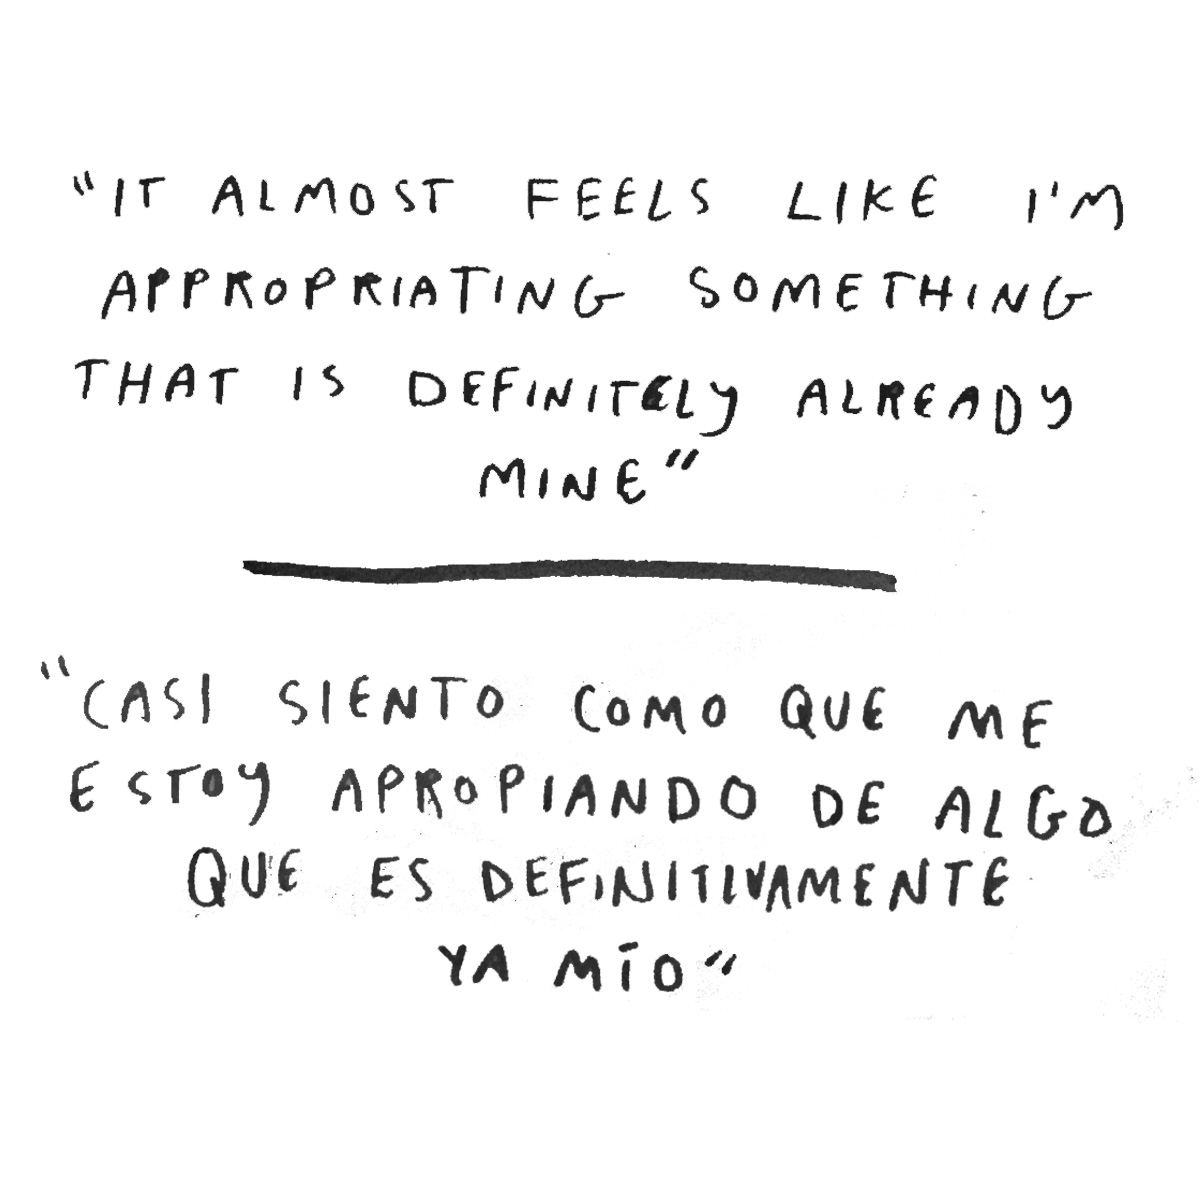 "IT ALMOST FEELS LIKE I'M
APPROPRIATING SOMETHING
THAT IS DEFINITELY ALREADY
MINE"
"CASI SIENTO COMO QUE ME
ESTOY APROPIANDO DE ALGO
QUE ES DEFINITIVAMENTE
YA MÍO"